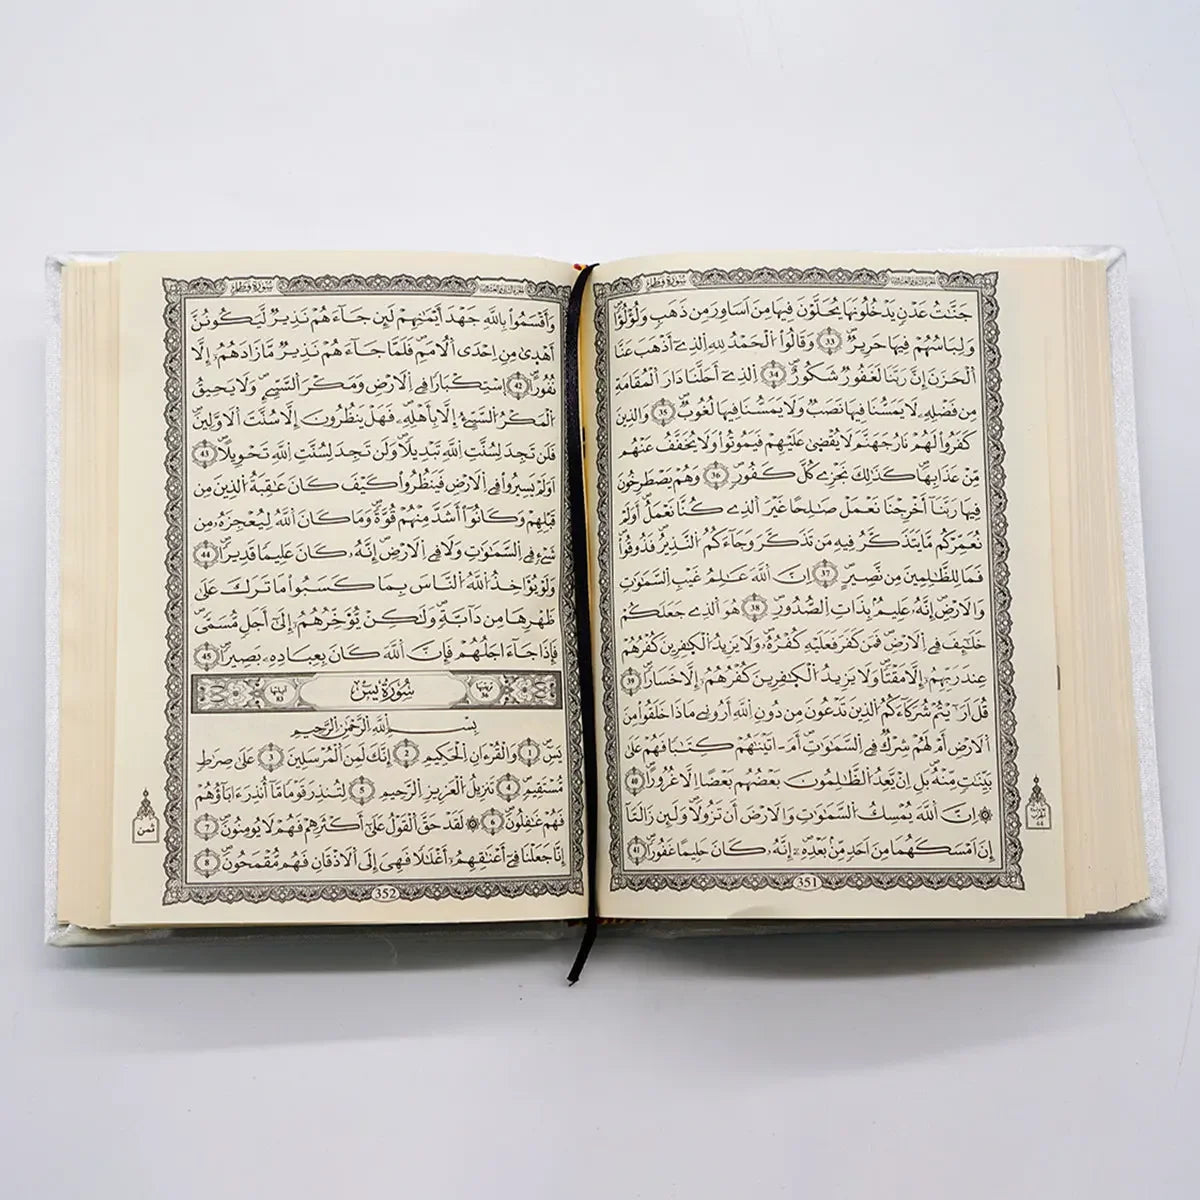 سُورَةُ فَاطِر
جَنَّٰتُ عَدْنٖ يَدْخُلُونَهَا يُحَلَّوْنَ فِيهَا مِنَ اَسَاوِرَ مِن ذَهَبٖ وَلُؤْلُؤاٗ
وَلِبَاسُهُمْ فِيهَا حَرِيرٞ 33 وَقَالُوا۟ اُ۬لْحَمْدُ لِلهِ اِ۬لذِےٓ أَذْهَبَ عَنَّا
اَ۬لْحَزَنَ إِنَّ رَبَّنَا لَغَفُورٞ شَكُورٌ 34 اِ۬لذِےٓ أَحَلَّنَا دَارَ اَ۬لْمُقَامَةِ
مِن فَضْلِهِۦ لَا يَمَسُّنَا فِيهَا نَصَبٞ وَلَا يَمَسُّنَا فِيهَا لُغُوبٞ 35 وَالذِينَ
كَفَرُوا۟ لَهُمْ نَارُ جَهَنَّمَ لَا يُقْضَىٰ عَلَيْهِمْ فَيَمُوتُوا۟ وَلَا يُخَفَّفُ عَنْهُم
مِّنْ عَذَابِهَا كَذَٰلِكَ نَجْزِے كُلَّ كَفُورٖ 36 وَهُمْ يَصْطَرِخُونَ
فِيهَا رَبَّنَآ أَخْرِجْنَا نَعْمَلْ صَٰلِحاً غَيْرَ اَ۬لذِے كُنَّا نَعْمَلُ أَوَلَمْ
نُعَمِّرْكُم مَّا يَتَذَكَّرُ فِيهِ مَن تَذَكَّرَ وَجَآءَكُمُ اُ۬لنَّذِيرُ فَذُوقُوا۟
فَمَا لِلظَّٰلِمِينَ مِن نَّصِيرٍ 37 اِنَّ اَ۬للَّهَ عَٰلِمُ غَيْبِ اِ۬لسَّمَٰوَٰتِ
وَالَارْضِ إِنَّهُۥ عَلِيمُۢ بِذَاتِ اِ۬لصُّدُورِ 38 هُوَ اَ۬لذِے جَعَلَكُمْ
خَلَٰٓئِفَ فِے اِ۬لَارْضِ فَمَن كَفَرَ فَعَلَيْهِ كُفْرُهُۥ وَلَا يَزِيدُ اُ۬لْكٰ۪فِرِينَ كُفْرُهُمْ
عِندَ رَبِّهِمُۥٓ إِلَّا مَقْتاٗ وَلَا يَزِيدُ اُ۬لْكٰ۪فِرِينَ كُفْرُهُمُۥٓ إِلَّا خَسَاراٗ 39
قُلَ اَرَٰٓيْتُمْ شُرَكَآءَكُمُ اُ۬لذِينَ تَدْعُونَ مِن دُونِ اِ۬للَّهِ أَرُونِے مَاذَا خَلَقُوا۟ مِنَ
اَ۬لَارْضِ أَمْ لَهُمْ شِرْكٞ فِے اِ۬لسَّمَٰوَٰتِ أَمَ اٰتَيْنَٰهُمْ كِتَٰباٗ فَهُمْ عَلَىٰ
بَيِّنَٰتٖ مِّنْهُ بَلِ اِنْ يَّعِدُ اُ۬لظَّٰلِمُونَ بَعْضُهُم بَعْضاً اِلَّا غُرُوراً 40
۞ اِنَّ اَ۬للَّهَ يُمْسِكُ اُ۬لسَّمَٰوَٰتِ وَالَارْضَ أَن تَزُولَا وَلَئِن زَالَتَآ
إِنَ اَمْسَكَهُمَا مِنَ اَحَدٖ مِّنۢ بَعْدِهِۦٓ إِنَّهُۥ كَانَ حَلِيماً غَفُوراٗ 41
351
سُورَةُ فَاطِر
وَأَقْسَمُوا۟ بِاللَّهِ جَهْدَ أَيْمَٰنِهِمْ لَئِن جَآءَهُمْ نَذِيرٞ لَّيَكُونُنَّ
أَهْد۪ىٰ مِنِ اِحْدَى اَ۬لُامَمِ فَلَمَّا جَآءَهُمْ نَذِيرٞ مَّا زَادَهُمُۥٓ إِلَّا
نُفُوراً 42 اِ۪سْتِكْبَاراٗ فِے اِ۬لَارْضِ وَمَكْرَ اَ۬لسَّيِّۓِ وَلَا يَحِيقُ
اُ۬لْمَكْرُ اُ۬لسَّيِّۓُ إِلَّا بِأَهْلِهِۦ فَهَلْ يَنظُرُونَ إِلَّا سُنَّتَ اَ۬لَاوَّلِينَ
فَلَن تَجِدَ لِسُنَّتِ اِ۬للَّهِ تَبْدِيلاٗ وَلَن تَجِدَ لِسُنَّتِ اِ۬للَّهِ تَحْوِيلاً 43
اَوَلَمْ يَسِيرُوا۟ فِے اِ۬لَارْضِ فَيَنظُرُوا۟ كَيْفَ كَانَ عَٰقِبَةُ اُ۬لذِينَ مِن
قَبْلِهِمْ وَكَانُوٓا۟ أَشَدَّ مِنْهُمْ قُوَّةٗ وَمَا كَانَ اَ۬للَّهُ لِيُعْجِزَهُۥ مِن
شَےْءٖ فِے اِ۬لسَّمَٰوَٰتِ وَلَا فِے اِ۬لَارْضِ إِنَّهُۥ كَانَ عَلِيماٗ قَدِيراٗ 44
وَلَوْ يُؤَاخِذُ اُ۬للَّهُ اُ۬لنَّاسَ بِمَا كَسَبُوا۟ مَا تَرَكَ عَلَىٰ
ظَهْرِهَا مِن دَآبَّةٖ وَلَٰكِنْ يُّؤَخِّرُهُمُۥٓ إِلَىٰٓ أَجَلٖ مُّسَمّىٗ
فَإِذَا جَآءَ اَجَلُهُمْ فَإِنَّ اَ۬للَّهَ كَانَ بِعِبَادِهِۦ بَصِيراٗ 45
ترتيبها 36
سُورَةُ يسٓ
آياتها 83
بِسْمِ اِ۬للَّهِ اِ۬لرَّحْمَٰنِ اِ۬لرَّحِيمِ
يسٓ 1 وَالْقُرْءَانِ اِ۬لْحَكِيمِ 2 إِنَّكَ لَمِنَ اَ۬لْمُرْسَلِينَ 3 عَلَىٰ صِرَٰطٖ
مُّسْتَقِيمٖ 4 تَنزِيلُ اُ۬لْعَزِيزِ اِ۬لرَّحِيمِ 5 لِتُنذِرَ قَوْماٗ مَّآ أُنذِرَ ءَابَآؤُهُمْ
فَهُمْ غَٰفِلُونَ 6 ۞ لَقَدْ حَقَّ اَ۬لْقَوْلُ عَلَىٰٓ أَكْثَرِهِمْ فَهُمْ لَا يُومِنُونَ 7
إِنَّا جَعَلْنَا فِےٓ أَعْنَٰقِهِمُۥٓ أَغْلَٰلاٗ فَهِيَ إِلَى اَ۬لَاذْقَانِ فَهُم مُّقْمَحُونَ 8
ثمن
352